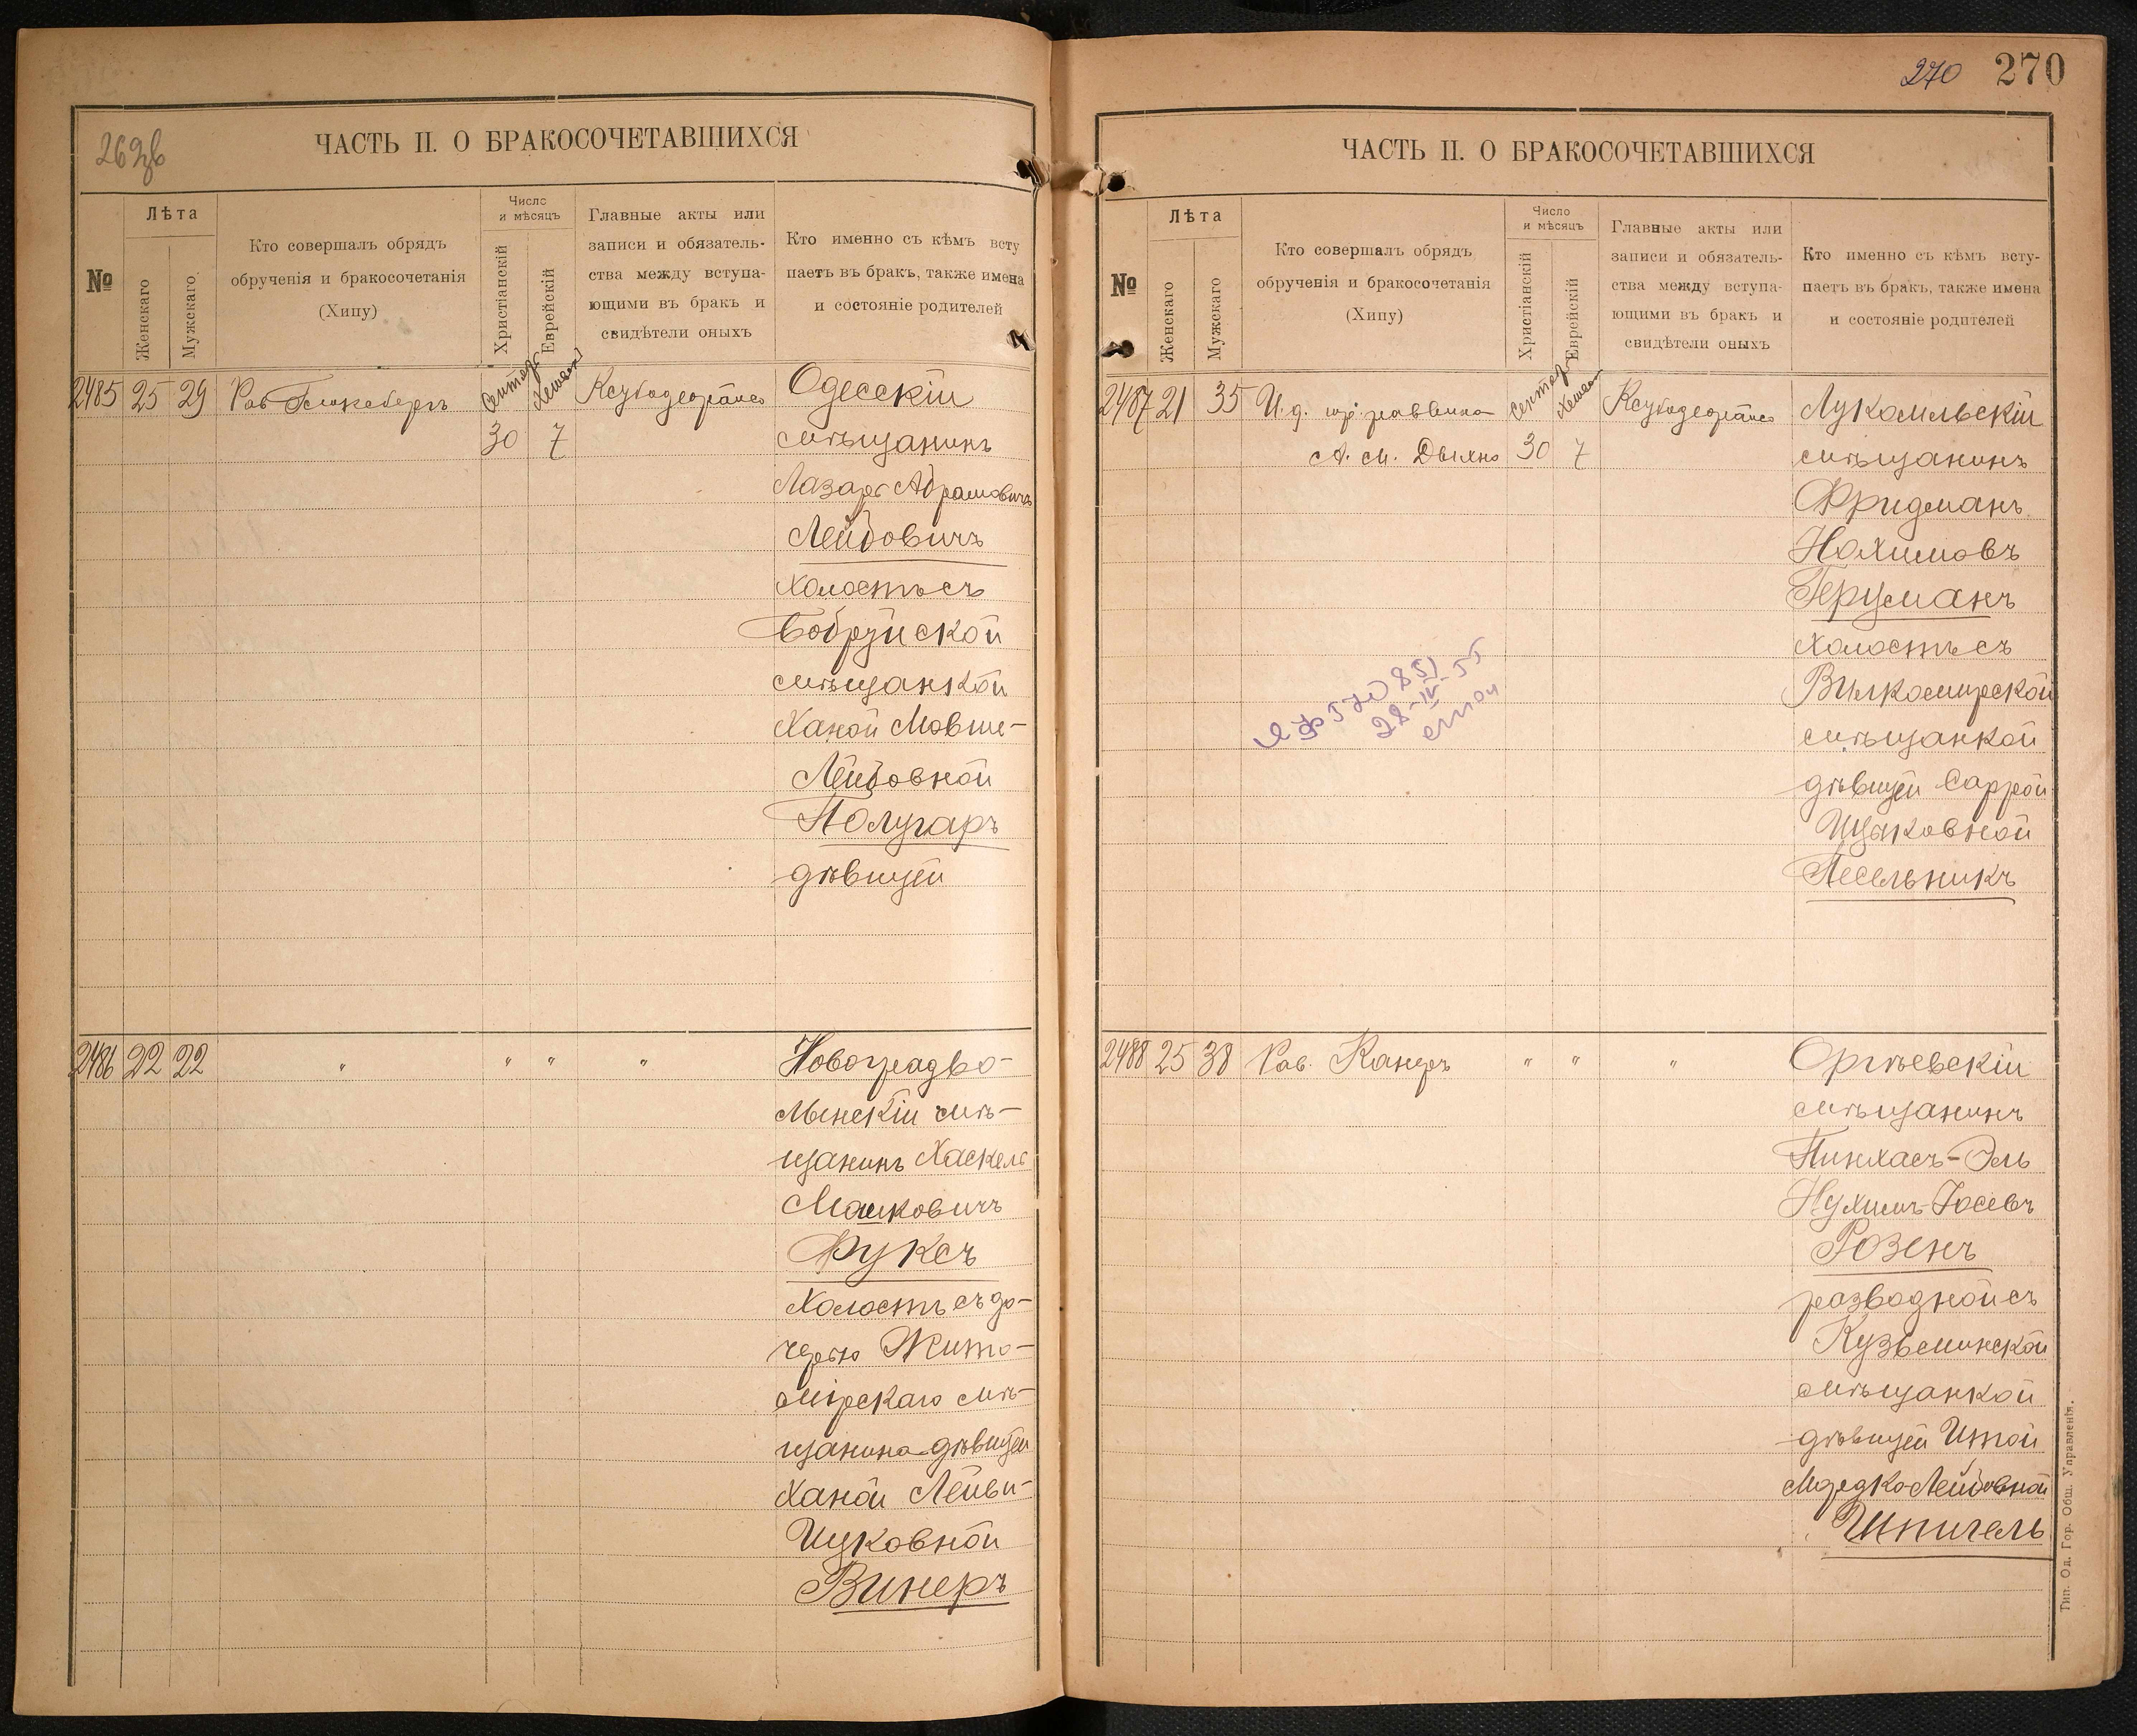 ЧАСТЬ II. О БРАКОСОЧЕТАВШИХСЯ
№
Лѣта
Женскаго
Мужскаго
Кто совершалъ обрядъ
обрученія и бракосочетанія
(Хипу)
Число
и мѣсяцъ
Христіанскій
Еврейскій
Главные акты или
записи и обязатель-
ства между вступа-
ющими въ бракъ и
свидѣтели оныхъ
Кто именно съ кѣмъ всту
паетъ въ бракъ, также имена
и состояніе родителей
2485 25 29 Рав
30 7
Одесскій
мѣщанинъ
Лазарь Абрамовичъ
Лейбовичъ
холостъ съ
Бобруйской
мѣщанкой
Ханой Мовше-
Лейбовной
Полугаръ
дѣвицей
2486 22 22 " " " "
Новоградво-
лынскій мѣ-
щанинъ Хаскель
Фуксъ
холостъ съ до-
черью Жито-
мірскаго мѣ-
щанина дѣвицей
Ханой Лейви-
Ицковной
Винеръ
270 270
ЧАСТЬ II. О БРАКОСОЧЕТАВШИХСЯ
№
Лѣта
Женскаго
Мужскаго
Кто совершалъ обрядъ
обрученія и бракосочетанія
(Хипу)
Число
и мѣсяцъ
Христіанскій
Еврейскій
Главные акты или
записи и обязатель-
ства между вступа-
ющими въ бракъ и
свидѣтели оныхъ
Кто именно съ кѣмъ всту-
паетъ въ бракъ, также имена
и состояніе родителей
2487 21 35 И. д. раввина
А. М. Дыхно 30 7
Лукомльскій
мѣщанинъ
Фридманъ
Нохимовъ
Герцманъ
холостъ съ
Вилкомирской
мѣщанкой
дѣвицей Саррой
Ицковной
Песельникъ
28-IV-55
2488 25 38 Рав. Канеръ " " "
Оргѣевскій
мѣщанинъ
Пинхасъ-Эль
Нухимъ-Іосевъ
Розенъ
разводной съ
Кузьминской
мѣщанкой
дѣвицей Итой
Мордко-Лейбовной
Шпигель
Тип. Од. Гор. Общ. Управленія.